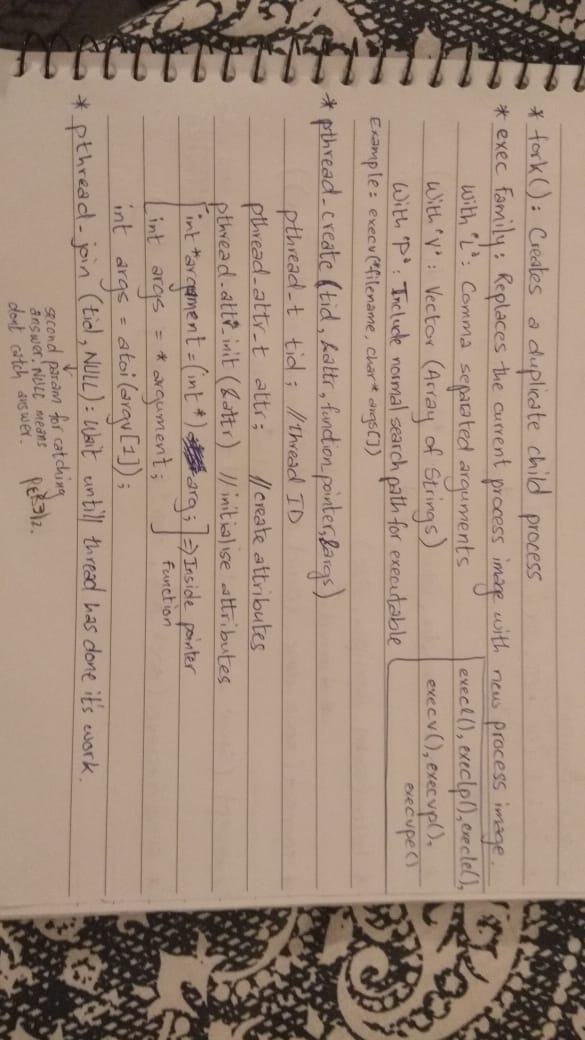 * fork(): Creates a duplicate child process
* exec Family: Replaces the current process image with new process image.
With 'L': Comma separated arguments
With 'V': Vector (Array of Strings)
With 'P': Include normal search path for executable
execl(), execlp(), execle(),
execv(), execvp(),
execvpe()
Example: execv(*filename, char* args[])
* pthread_create (tid, &attr, function_pointer, &args)
pthread_t tid; //thread ID
pthread_attr_t attr; //create attributes
pthread_attr_init (&attr) //initialise attributes
[int *argument = (int *) arg;] => Inside pointer
function
int args = *argument;
int args = atoi(argv[1]);
* pthread_join (tid, NULL): Wait untill thread has done it's work.
second param for catching
answer. NULL means
dont catch answer.